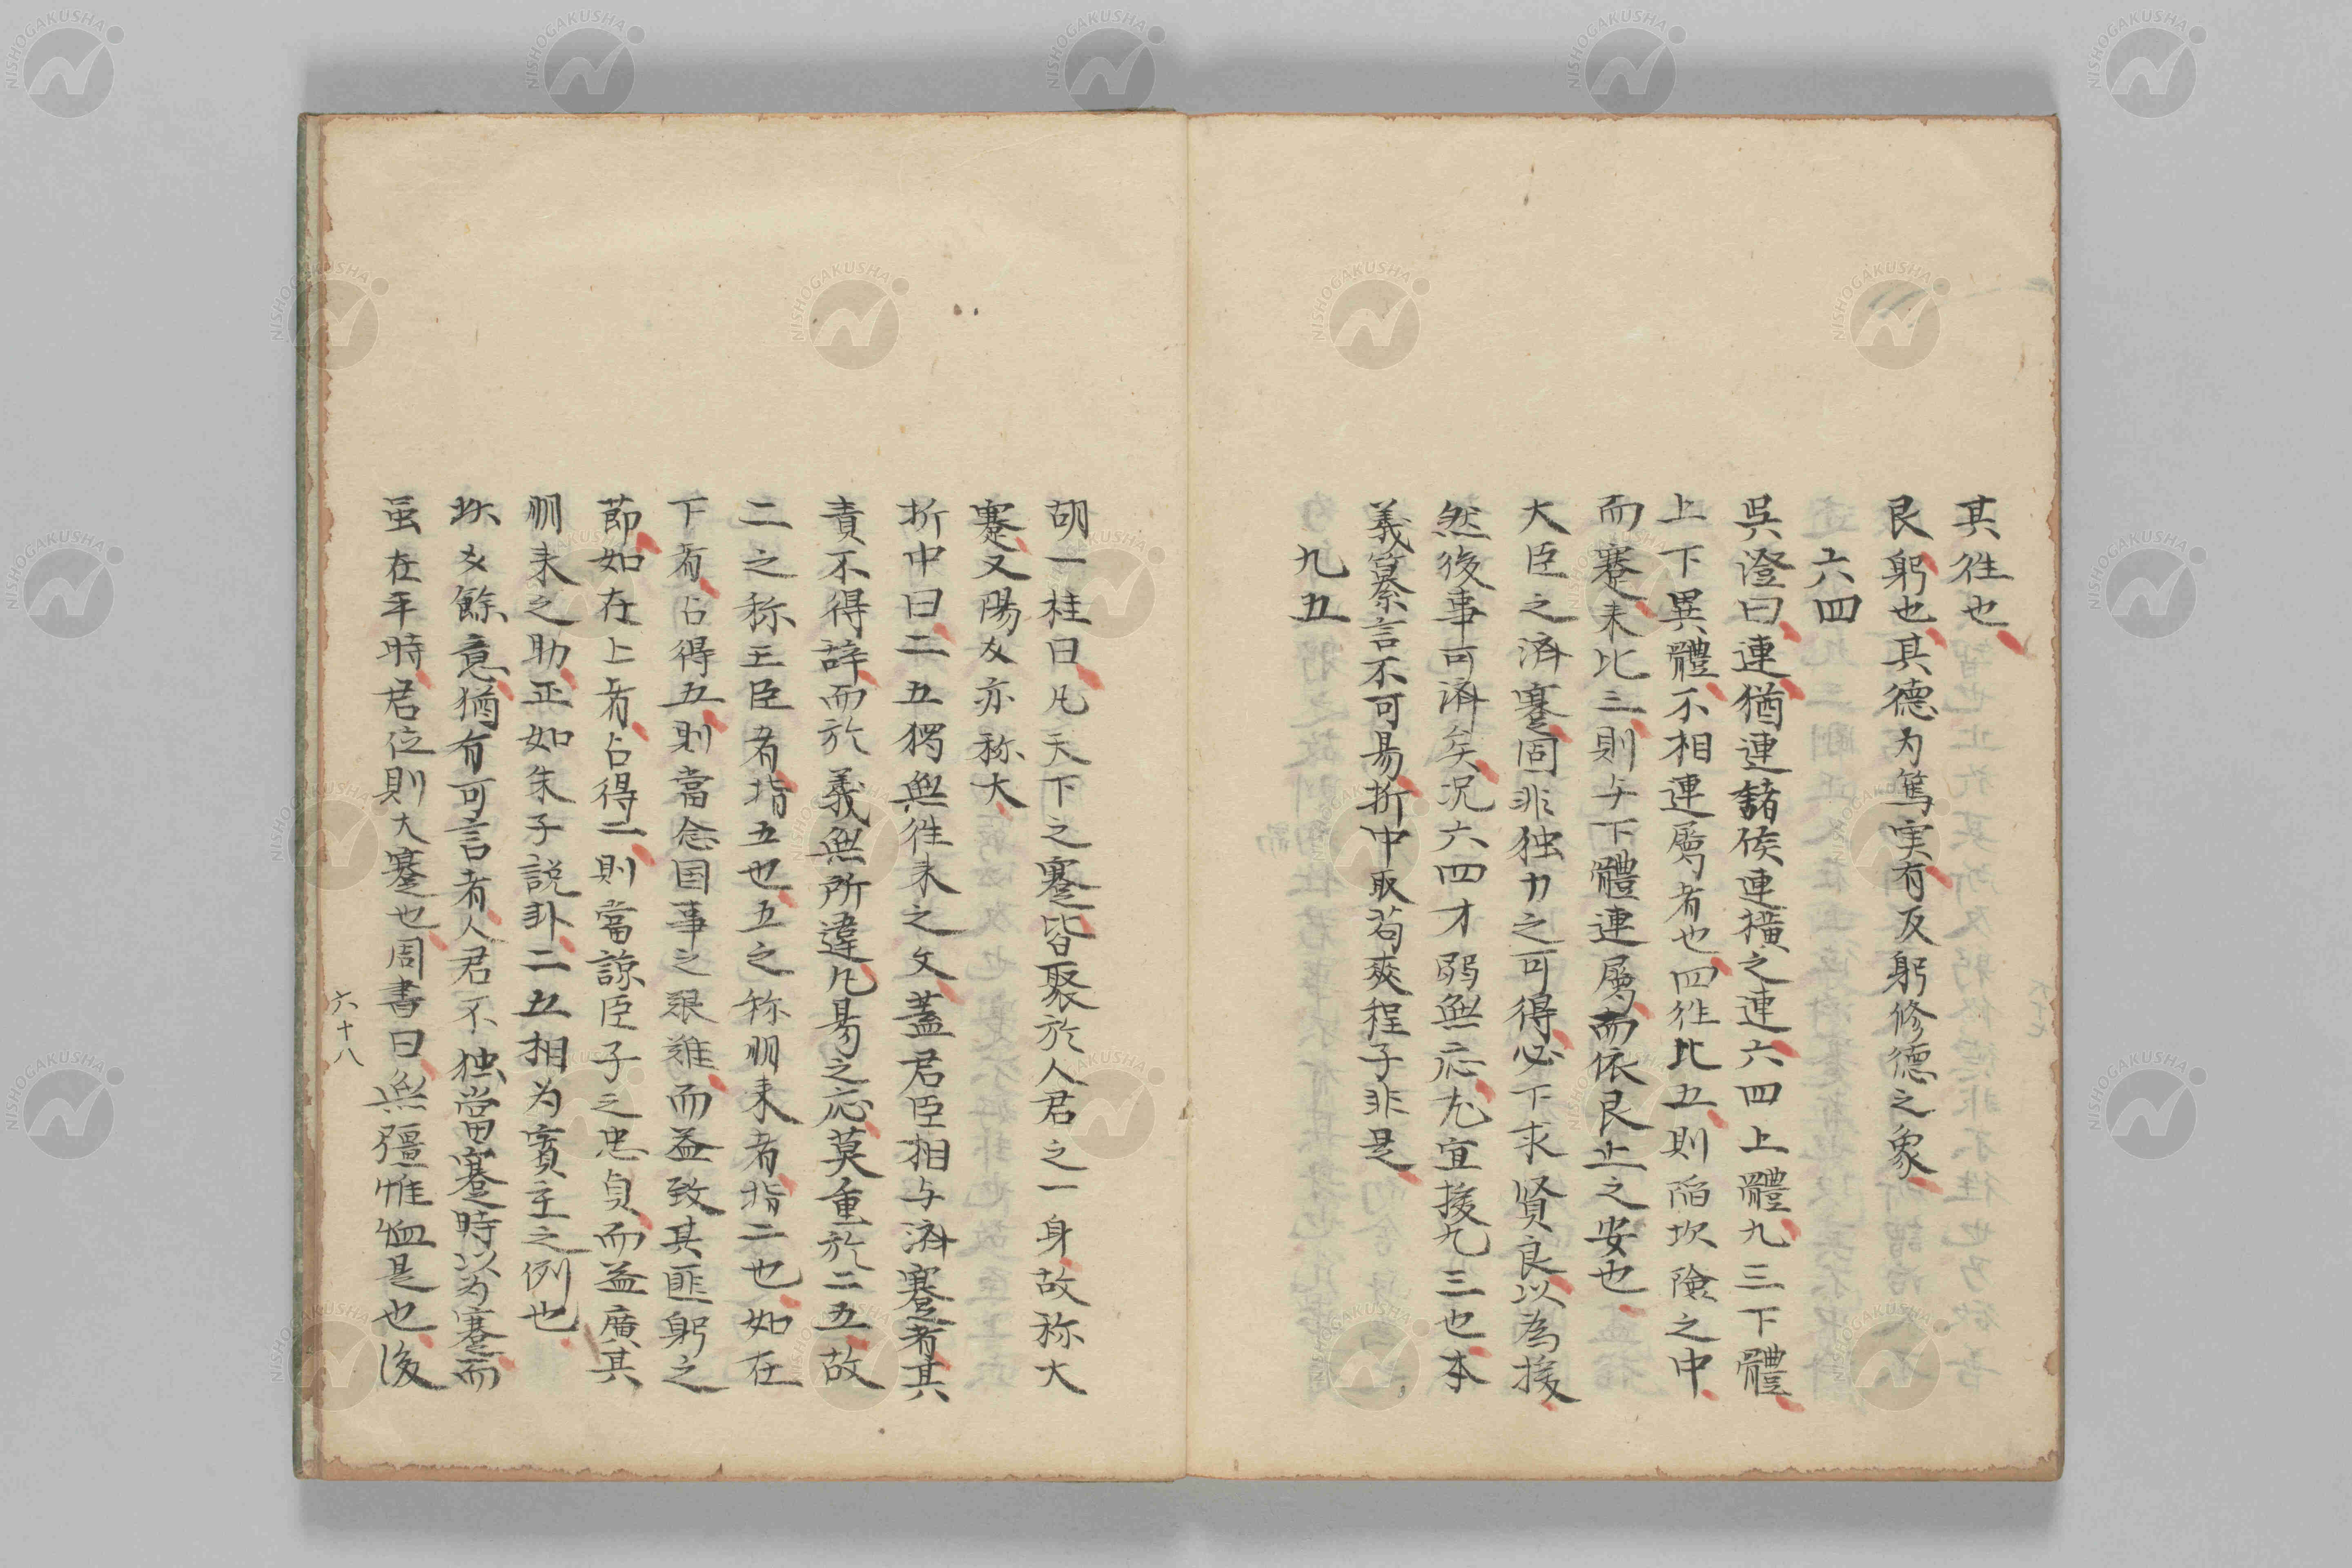 其往也
艮躬也其德为篤实有反躬修德之象
六四
吳澄曰連猶連諸侯連横之連六四上體九三下體
上下異體不相連屬者也四往比五則陷坎險之中
而蹇来比三則与下體連屬而依艮止之安也
大臣之済蹇固非独力之可得必下求賢良以為援
然後事可済矣况六四才弱無応尤宜援九三也本
義纂言不可易折中取荀爽程子非是
九五
胡一桂曰凡天下之蹇皆聚於人君之一身故称大
蹇又陽爻亦称大
折中曰二五獨無往来之文蓋君臣相与済蹇者其
責不得辞而於義無所違凡易之応莫重於二五故
二之称王臣者指五也五之称朋来者指二也如在
下有占得五則當念国事之艱難而益致其匪躬之
節如在上有占得二則當諒臣子之忠貞而益廣其
朋来之助正如朱子説卦二五相为賓主之例也
坎爻餘意猶有可言者人君不独當蹇時以为蹇而
虽在平時君位則大蹇也周書曰無疆惟恤是也後
六十八
NISHOGAKUSHA